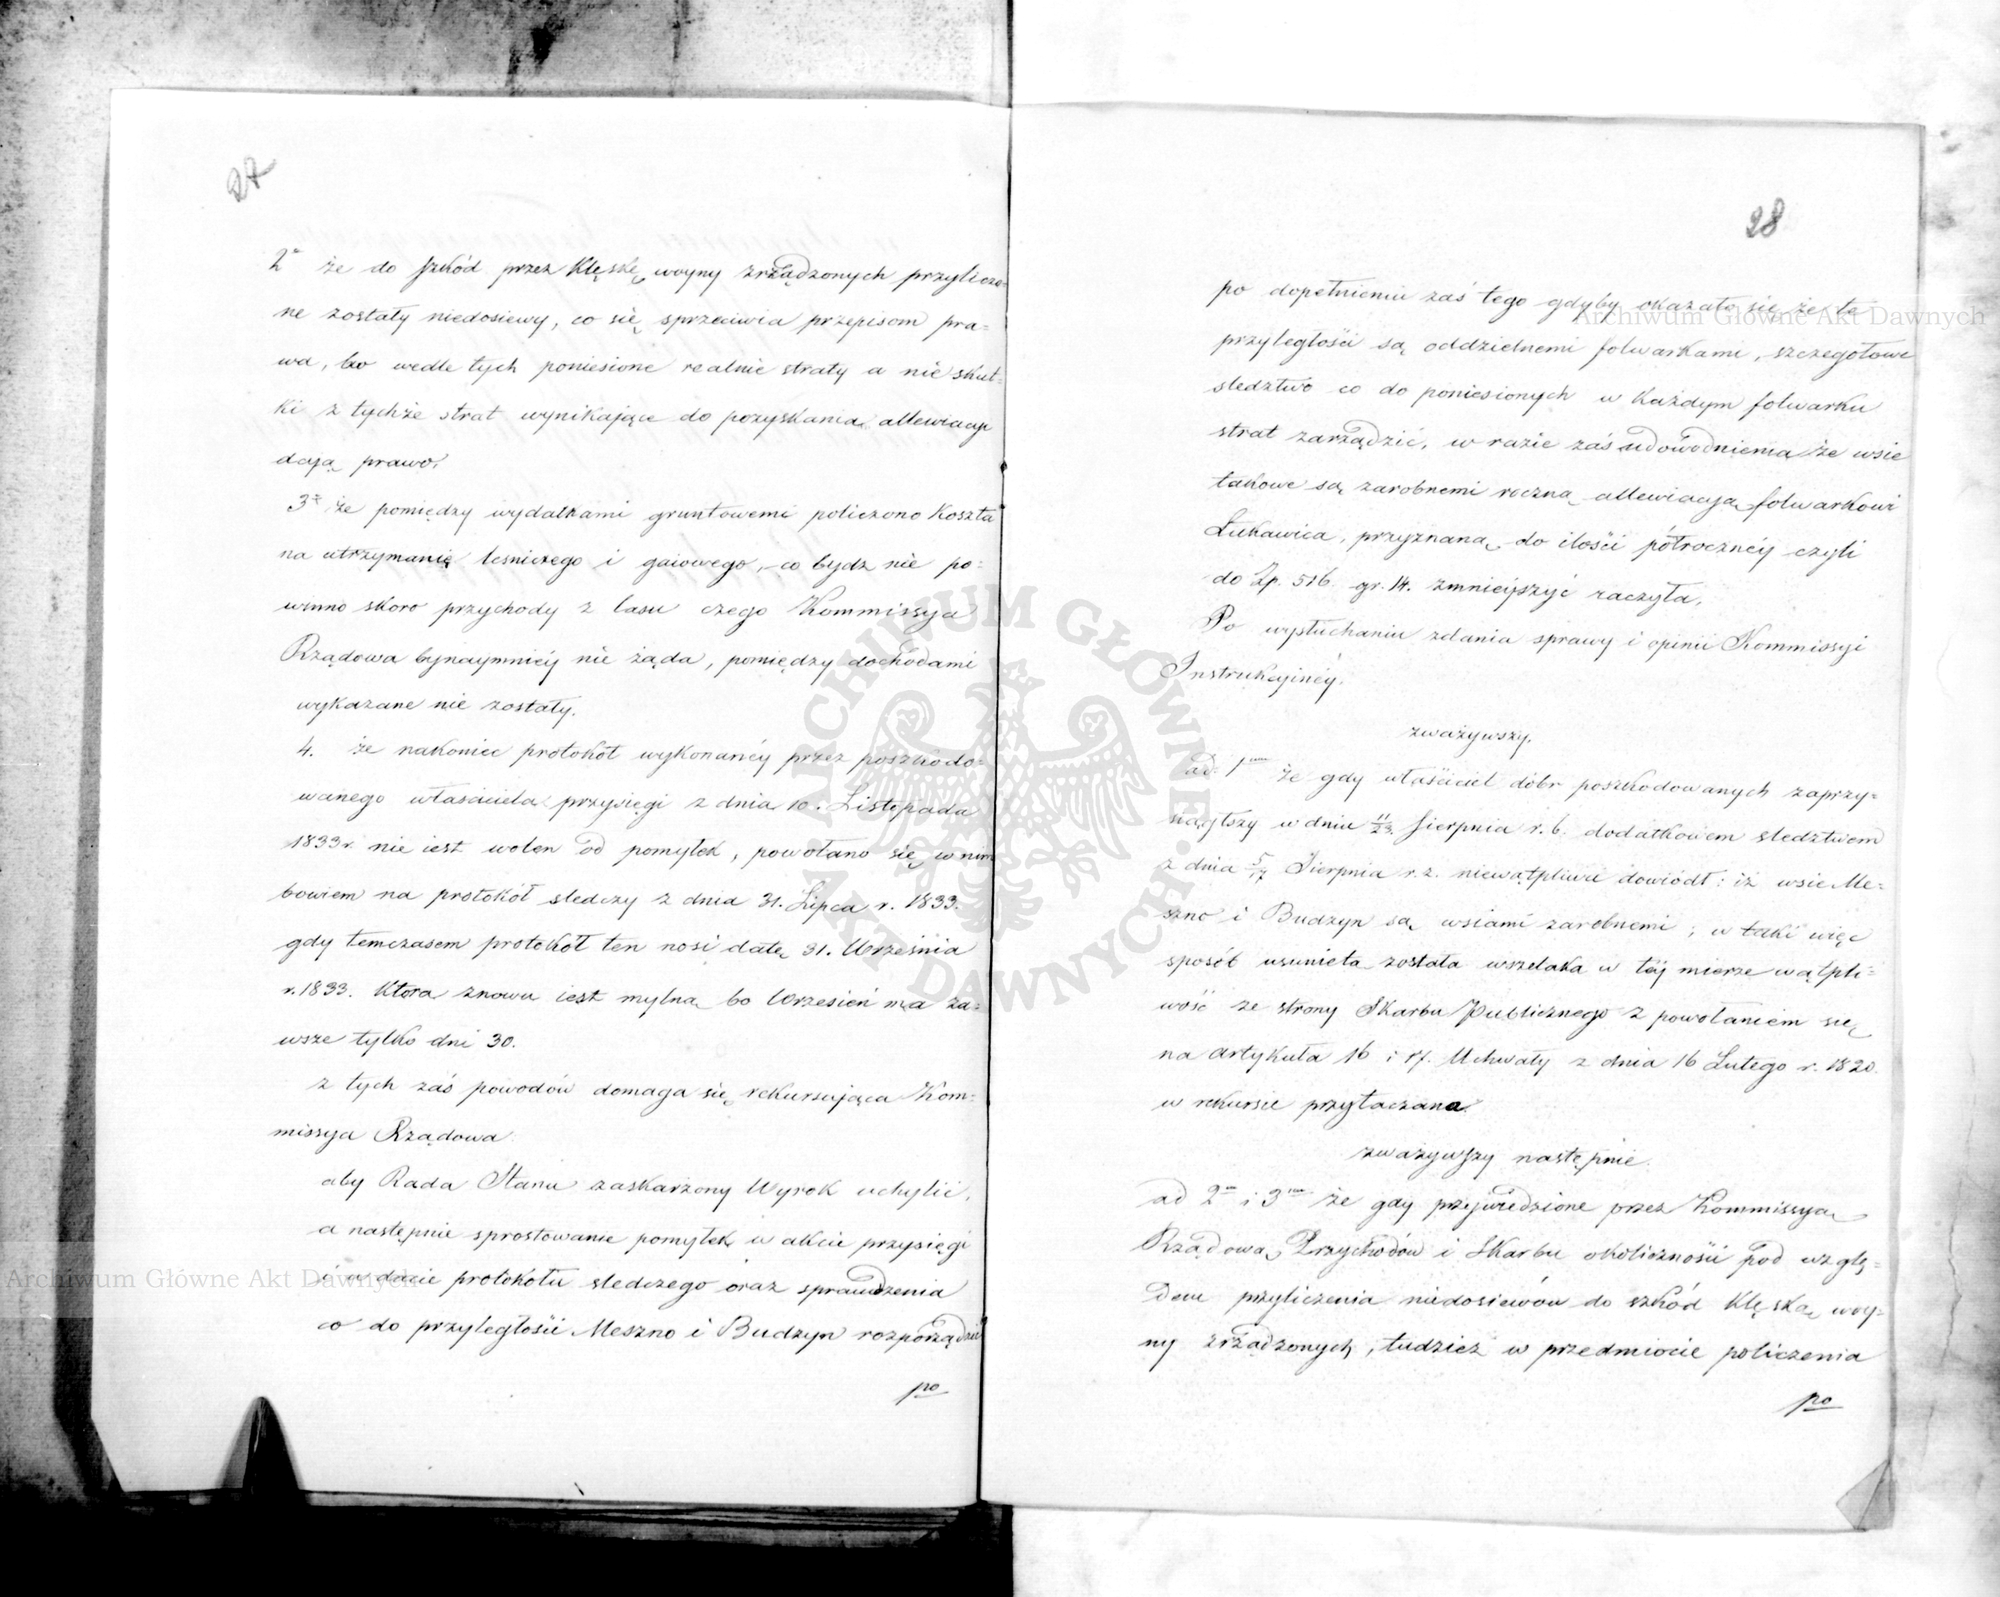 27
2e że do szkód przez klęskę woyny zrządzonych przyliczo-
ne zostały niedosiewy, co się sprzeciwia przepisom pra-
wa, bo wedle tych poniesione realnie straty a nie skut-
ki z tychże strat wynikające do pozyskania allewiacyi
dają prawo.
3e że pomiędzy wydatkami gruntowemi policzono koszta
na utrzymanie leśniczego i gaiowego, co bydz nie po-
winno skoro przychody z lasu czego Kommissya
Rządowa bynaymniéy nie żąda, pomiędzy dochodami
wykazane nie zostały.
4. że nakoniec protokół wykonanéy przez poszkodo-
wanego właściciela przysięgi z dnia 10. Listopada
1833 r. nie iest wolen od pomyłek, powołano się w nim
bowiem na protokół sledczy z dnia 31. Lipca r. 1833.
gdy temczasem protokół ten nosi datę 31. Września
r. 1833. która znowu iest mylną bo Wrzesień ma za-
wsze tylko dni 30.
z tych zaś powodów domaga się rekursująca Kom-
missya Rządowa
aby Rada Stanu zaskarżony Wyrok uchylić,
a następnie sprostowanie pomyłek w akcie przysięgi
i w dacie protokołu sledczego oraz sprawdzenia
co do przyległości Meszno i Budzyn rozporządzić
po
28
po dopełnieniu zaś tego gdyby okazało się że te
przyległości są oddzielnemi folwarkami, szczegołowe
sledztwo co do poniesionych w każdym folwarku
strat zarządzić, w razie zaś udowodnienia że wsie
takowe są zarobnemi roczną allewiacyą folwarkowi
Łukawica, przyznaną do ilości półrocznéy czyli
do Zp. 516 gr. 14. zmnieyszyć raczyła.
Po wysłuchaniu zdania sprawy i opinii Kommissyi
Instrukcyinéy.
zważywszy.
ad 1um że gdy właściciel dóbr poszkodowanych zaprzy-
siągłszy w dniu 11/23. Sierpnia r. b. dodatkowem sledztwem
z dnia 5/17 Sierpnia r. z. niewątpliwie dowiódł: iż wsie Me-
szno i Budzyn są wsiami zarobnemi; w taki więc
sposób usunięta została wszelaka w téy mierze wątpli-
wość ze strony Skarbu Publicznego z powołaniem się
na artykuła 16 i 17. Uchwały z dnia 16 Lutego r. 1820.
w rekursie przytaczana.
zważywszy następnie.
ad 2um i 3um że gdy przywiedzione przez Kommissyą
Rządową Przychodów i Skarbu okoliczności pod wzglę-
dem przyliczenia niedosiewów do szkód klęską woy-
ny zrządzonych, tudzież w przedmiocie policzenia
po
Archiwum Główne Akt Dawnych
Archiwum Główne Akt Dawnych
ARCHIWUM GŁÓWNE AKT DAWNYCH